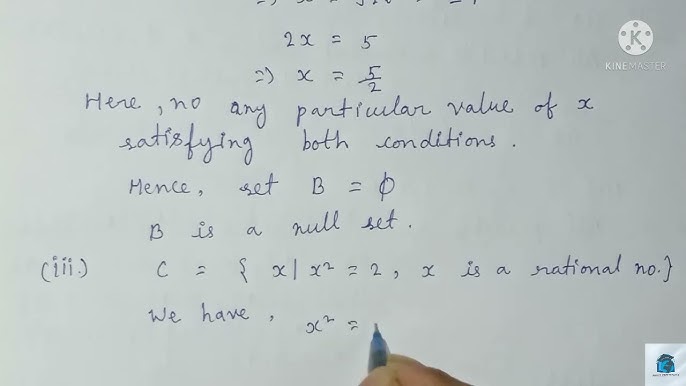 2x = 5
=> x = 5/2
Here, no any particular value of x
satisfying both conditions.
Hence, set B = ϕ
B is a null set.
(iii.) C = { x | x² = 2, x is a rational no.}
We have, x² =
KINEMASTER